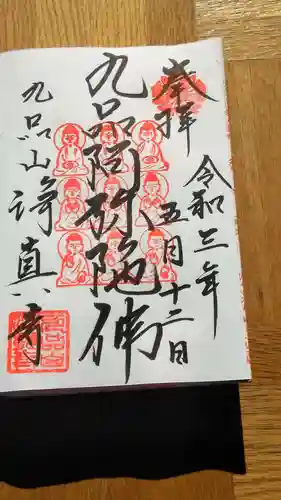 奉拝
令和三年
五月十二日
九品阿弥陀佛
九品山
浄真寺